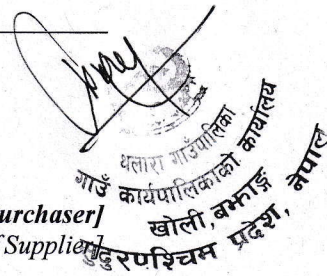 थलारा गाउँपालिका
गाउँ कार्यपालिकाको कार्यालय
खोली, बझाङ्ग
सुदुरपश्चिम प्रदेश, नेपाल
urchaser]
f Supplier]